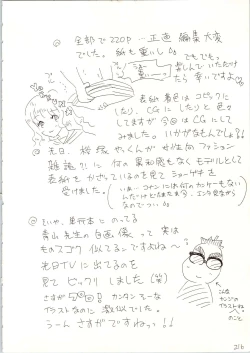 @ 全部で220P…正直 編集大変
でした。紙も重いし
でもでも、
楽しんでいただけ
たら 幸いですよ
表紙 着色は コピックに
したり、CGに したりと 色々
してますが 今回は CGにして
みました。いかがなもんでしょう?
@ 先日、
女性向 ファッション
雑誌?に 何の 違和感もなく モデルとして
表紙を かざっているのを見て ショーゲキを
受けました。
@ そいや、単行本に のってる
青山先生の自画像って 実は
ものスゴク 似てるンですよね〜!
先日TVに 出てるのを
見て ビックリ しました(笑)
さすが プロ カンタンそーな
イラストなのに 激似でした。
うーん さすがですねっっ!!
こんな
カンジの
イラストね
のこと